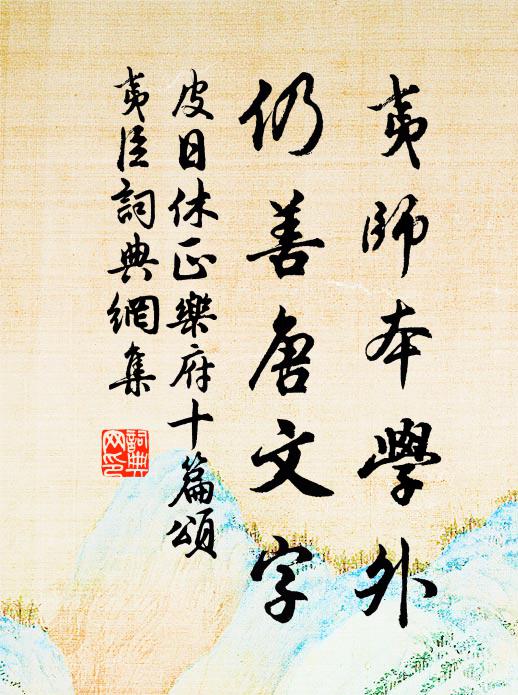 夷師本學外
仍善唐文字
皮日休正樂府十篇頌
夷臣詞典網集
詞典
网印